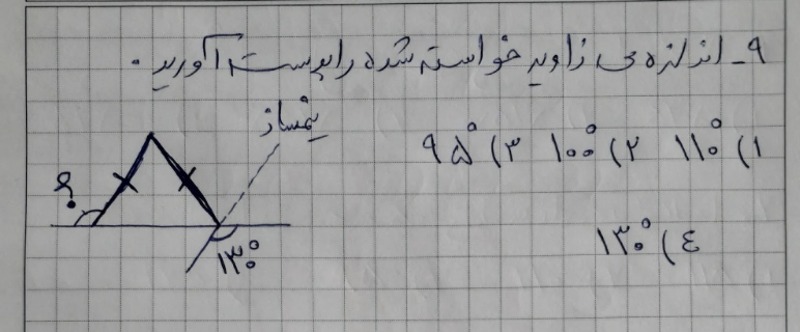 ۹ـ اندازه ی زاویه خواسته شده را بدست آورید.
۱) ۱۱۰° ۲) ۱۰۰° ۳) ۹۵°
۴) ۱۳۰°
نیمساز
؟
۱۳۰°